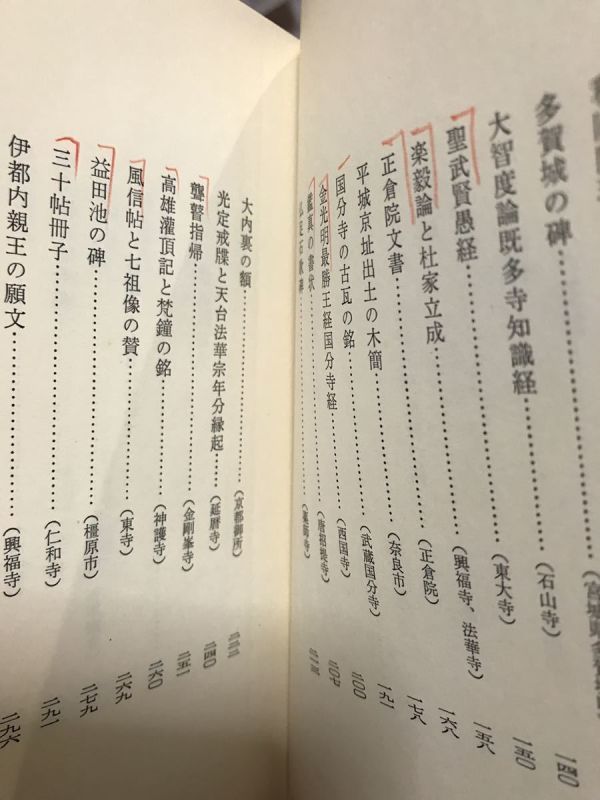 多賀城の碑
大智度論既多寺知識経……(石山寺) 一四〇
聖武賢愚経……(東大寺) 一五〇
楽毅論と杜家立成……(興福寺、法華寺) 一五八
正倉院文書……(正倉院) 一六八
平城京址出土の木簡……(奈良市) 一七八
国分寺の古瓦の銘……(武蔵国分寺) 一九一
金光明最勝王経国分寺経……(西国寺) 二〇〇
鑑真の書状……(唐招提寺) 二〇七
仏足石歌碑……(薬師寺) 二一三
大内裏の額……(京都御所) 二二二
光定戒牒と天台法華宗年分縁起……(延暦寺) 二四〇
聾瞽指帰……(金剛峯寺) 二五一
高雄灌頂記と梵鐘の銘……(神護寺) 二六〇
風信帖と七祖像の賛……(東寺) 二六九
益田池の碑……(橿原市) 二七九
三十帖冊子……(仁和寺) 二九一
伊都内親王の願文……(興福寺) 二九六